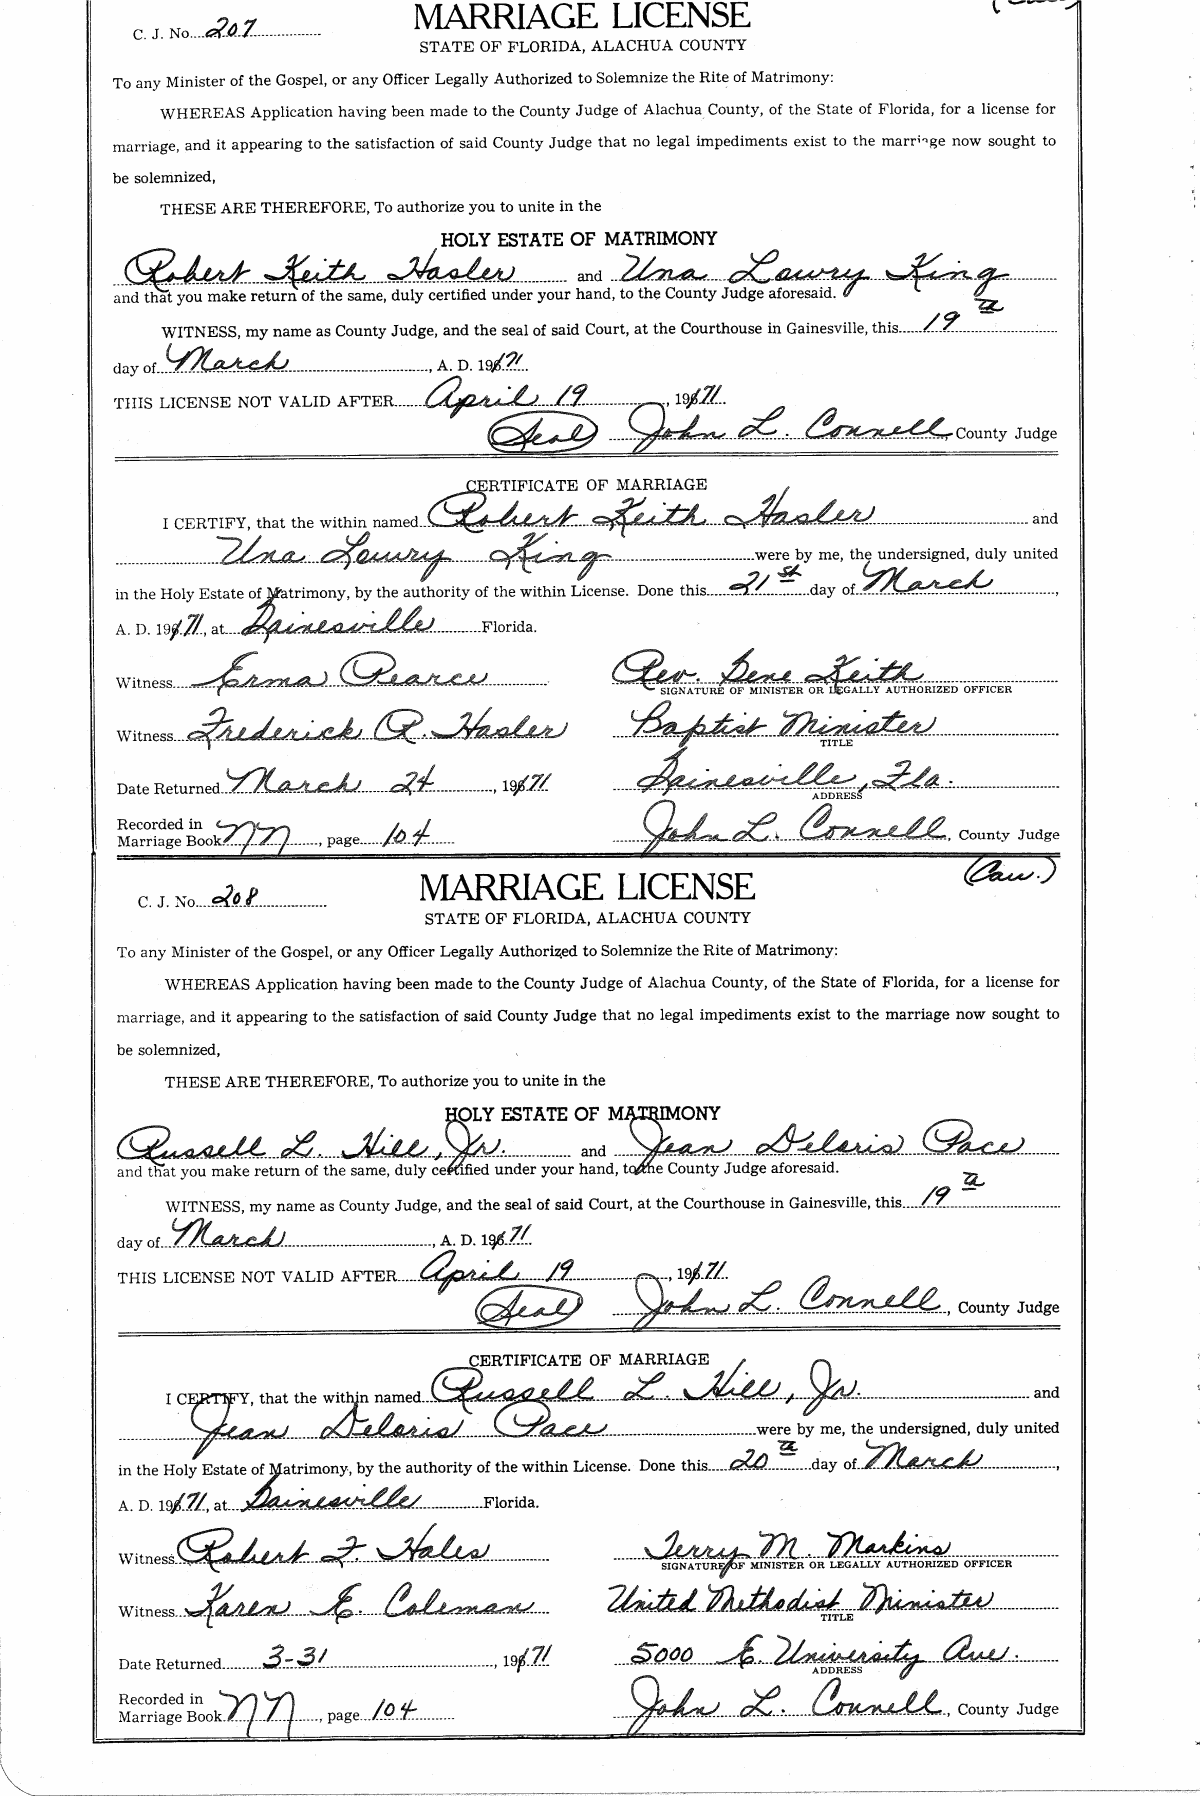 C. J. No. 207
MARRIAGE LICENSE
STATE OF FLORIDA, ALACHUA COUNTY
To any Minister of the Gospel, or any Officer Legally Authorized to Solemnize the Rite of Matrimony:
WHEREAS Application having been made to the County Judge of Alachua County, of the State of Florida, for a license for
marriage, and it appearing to the satisfaction of said County Judge that no legal impediments exist to the marriage now sought to
be solemnized,
THESE ARE THEREFORE, To authorize you to unite in the
HOLY ESTATE OF MATRIMONY
Robert Keith Hasler and Una Lowry King
and that you make return of the same, duly certified under your hand, to the County Judge aforesaid.
WITNESS, my name as County Judge, and the seal of said Court, at the Courthouse in Gainesville, this 19th
day of March, A. D. 1971
THIS LICENSE NOT VALID AFTER April 19, 1971
(Seal) John L. Connell County Judge
CERTIFICATE OF MARRIAGE
I CERTIFY, that the within named Robert Keith Hasler and
Una Lowry King were by me, the undersigned, duly united
in the Holy Estate of Matrimony, by the authority of the within License. Done this 21st day of March,
A. D. 1971, at Gainesville Florida.
Witness Erma Pearce Rev. Gene Keith
SIGNATURE OF MINISTER OR LEGALLY AUTHORIZED OFFICER
Witness Frederick R. Hasler Baptist Minister
TITLE
Date Returned March 24, 1971 Gainesville, Fla.
ADDRESS
Recorded in
Marriage Book NN, page 104 John L. Connell, County Judge
(Cau.)
C. J. No. 208
MARRIAGE LICENSE
STATE OF FLORIDA, ALACHUA COUNTY
To any Minister of the Gospel, or any Officer Legally Authorized to Solemnize the Rite of Matrimony:
WHEREAS Application having been made to the County Judge of Alachua County, of the State of Florida, for a license for
marriage, and it appearing to the satisfaction of said County Judge that no legal impediments exist to the marriage now sought to
be solemnized,
THESE ARE THEREFORE, To authorize you to unite in the
HOLY ESTATE OF MATRIMONY
Russell L. Hill, Jr. and Jean Deloris Pace
and that you make return of the same, duly certified under your hand, to the County Judge aforesaid.
WITNESS, my name as County Judge, and the seal of said Court, at the Courthouse in Gainesville, this 19th
day of March, A. D. 1971
THIS LICENSE NOT VALID AFTER April 19, 1971
(Seal) John L. Connell, County Judge
CERTIFICATE OF MARRIAGE
I CERTIFY, that the within named Russell L. Hill, Jr. and
Jean Deloris Pace were by me, the undersigned, duly united
in the Holy Estate of Matrimony, by the authority of the within License. Done this 20th day of March,
A. D. 1971, at Gainesville Florida.
Witness Robert F. Hales Terry M. Markins
SIGNATURE OF MINISTER OR LEGALLY AUTHORIZED OFFICER
Witness Karen E. Coleman United Methodist Minister
TITLE
Date Returned 3-31, 1971 5000 E. University Ave.
ADDRESS
Recorded in
Marriage Book NN, page 104 John L. Connell, County Judge